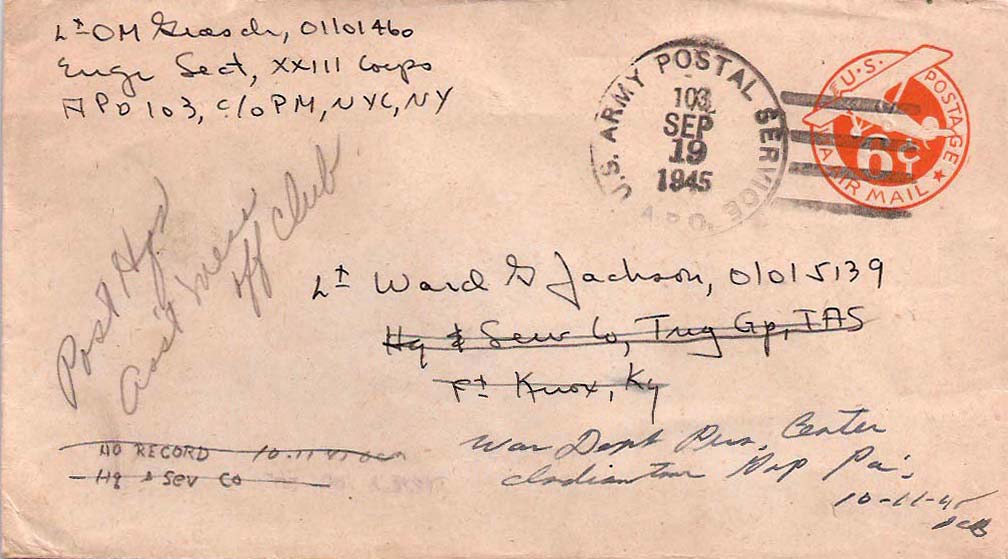 Lt OM Grasch, 01101460
Engr Sect, XXIII Corps
APO 103, c/o PM, NYC, NY
U.S. ARMY POSTAL SERVICE
103
SEP
19
1945
A.P.O.
U.S. POSTAGE
6¢
VIA AIR MAIL
Post Hqs
Ass't
Off Club
Lt Ward G Jackson, 01015139
Hq & Serv Co, Tng Gp, TAS
Ft Knox, Ky
War Dept Pers. Center
Indiantown Gap Pa.,
10-11-45
NO RECORD 10-11-45
Hq & Sev Co